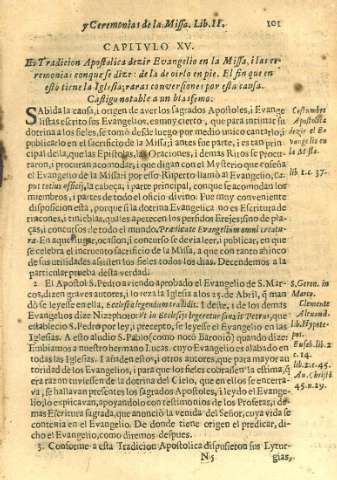 y Ceremonias de la Missa. Lib. II. 101
CAPITULO XV.
Es Tradicion Apostolica dezir Evangelio en la Missa, i las ce-
remonias con que se dize: de la de oirlo en pie. El fin que en
esto tiene la Iglesia; raras conversiones por esta causa.
Castigo notable a un blasfemo.
SAbida la causa, i origen de aver los sagrados Apostoles, i Evange
listas escrito sus Evangelios, es muy cierto, que para intimar su
dotrina a los fieles, se tomò desde luego por medio unico cantarlo, i
publicarlo en el sacrificio de la Missa; i antes fue parte, i es tan prin
cipal della, que las Epistolas, las Oraciones, i demas Ritos se procura-
ron, i procuran acomodar, i que digan con el Mysterio que enseña
el Evangelio de la Missa: i por esso Ruperto llamò al Evangelio, Ca-
put totius officij, la cabeça, i parte principal, con que se acomodan los
miembros, i partes de todo el oficio divino. Fue muy conveniente
disposicion esta, porque la dotrina Evangelica no es Escritura de
rincones, i tiniebla, quales apetecen los perfidos Erejes; sino de pla-
ças, i concursos de todo el mundo, Prædicate Evangelium omni creatu-
ra. En aquel lugar, ocasion, i concurso se devia leer, i publicar, en que
se celebra el incruento sacrificio de la Missa, a que con tanto ahinco
de sus utilidades assisten los fieles todos los dias. Decendemos a la
particular prueba desta verdad.
2 El Apostol S. Pedro aviendo aprobado el Evangelio de S. Mar-
cos, dizen graves autores, i lo reza la Iglesia a los 25. de Abril, que man
dò se leyesse en ella, Ecclesiæ legendum tradidit. I deste, i de los demas
Evangelios dize Nizephoro: Vt in Ecclesijs legeretur sanxit Petrus, que
estableciò S. Pedro por ley, i precepto, se leyesse el Evangelio en las
Iglesias. A esto aludiò S. Pablo (como notò Baronio) quando dize:
Embiamos a nuestro hermano Lucas, cuyo Evangelio es alabado en
todas las Iglesias. I añaden estos, i otros autores, que para mayor au
toridad de los Evangelios, i para que los fieles cobrassen la estima, q̃
era razon tuviessen de la dotrina del Cielo, que en ellos se encerra-
va, se hallavan presentes los sagrados Apostoles, i leydo el Evange-
lio, lo explicavan, apoyandolo con testimonios de los Profetas, i de-
mas Escritura sagrada, que anunciò la venida del Señor, cuya vida se
contenia en el Evangelio. De donde tiene origen el predicar, di-
cho el Evangelio, como diremos despues.
3. Conforme a esta Tradicion Apostolica dispusieron sus Lytur-
N 5 gias,
Costumbre
Apostolica
dezir el E-
vangelio en
la Missa.
lib. 1. c. 37.
S. Geron. in
Marco.
Clemente
Alexand.
lib. Hypote-
pos.
Euseb. lib. 2
c. 14.
lib. 2. c. 45.
An. Christi
45. n. 29.